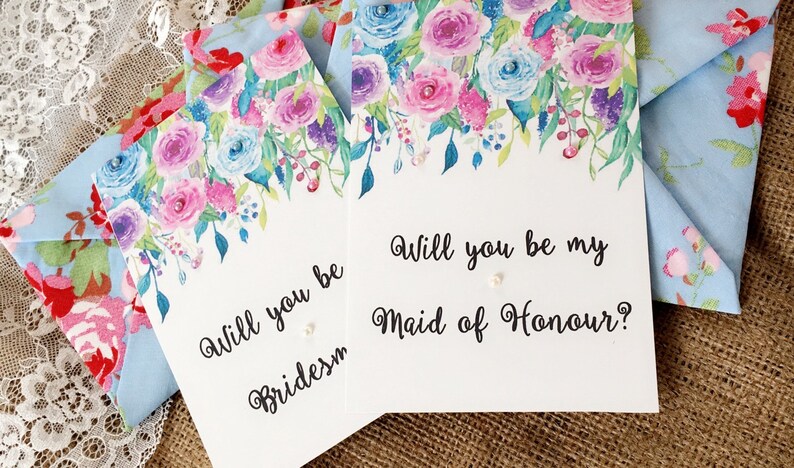 Will you be my
Maid of Honour?
Will you be